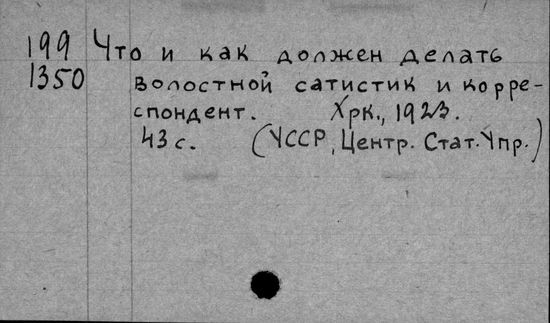 199 Что и как должен делать
1350 волостной сатистик и корре-
спондент. Хрк., 1923.
43 с. (УССР, Центр. Стат. Упр.)